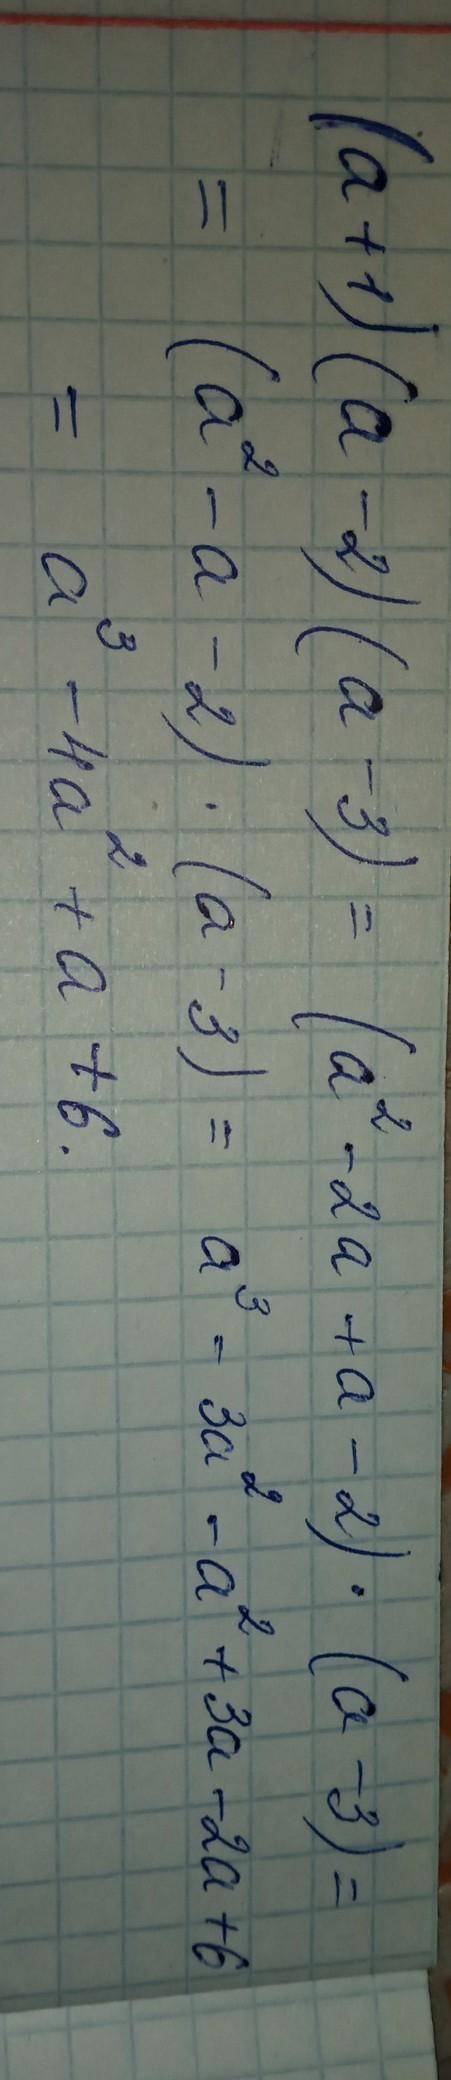 (a+1)(a-2)(a-3) = (a²-2a+a-2)·(a-3)=
= (a²-a-2)·(a-3) = a³-3a²-a²+3a-2a+6
= a³-4a²+a+6.